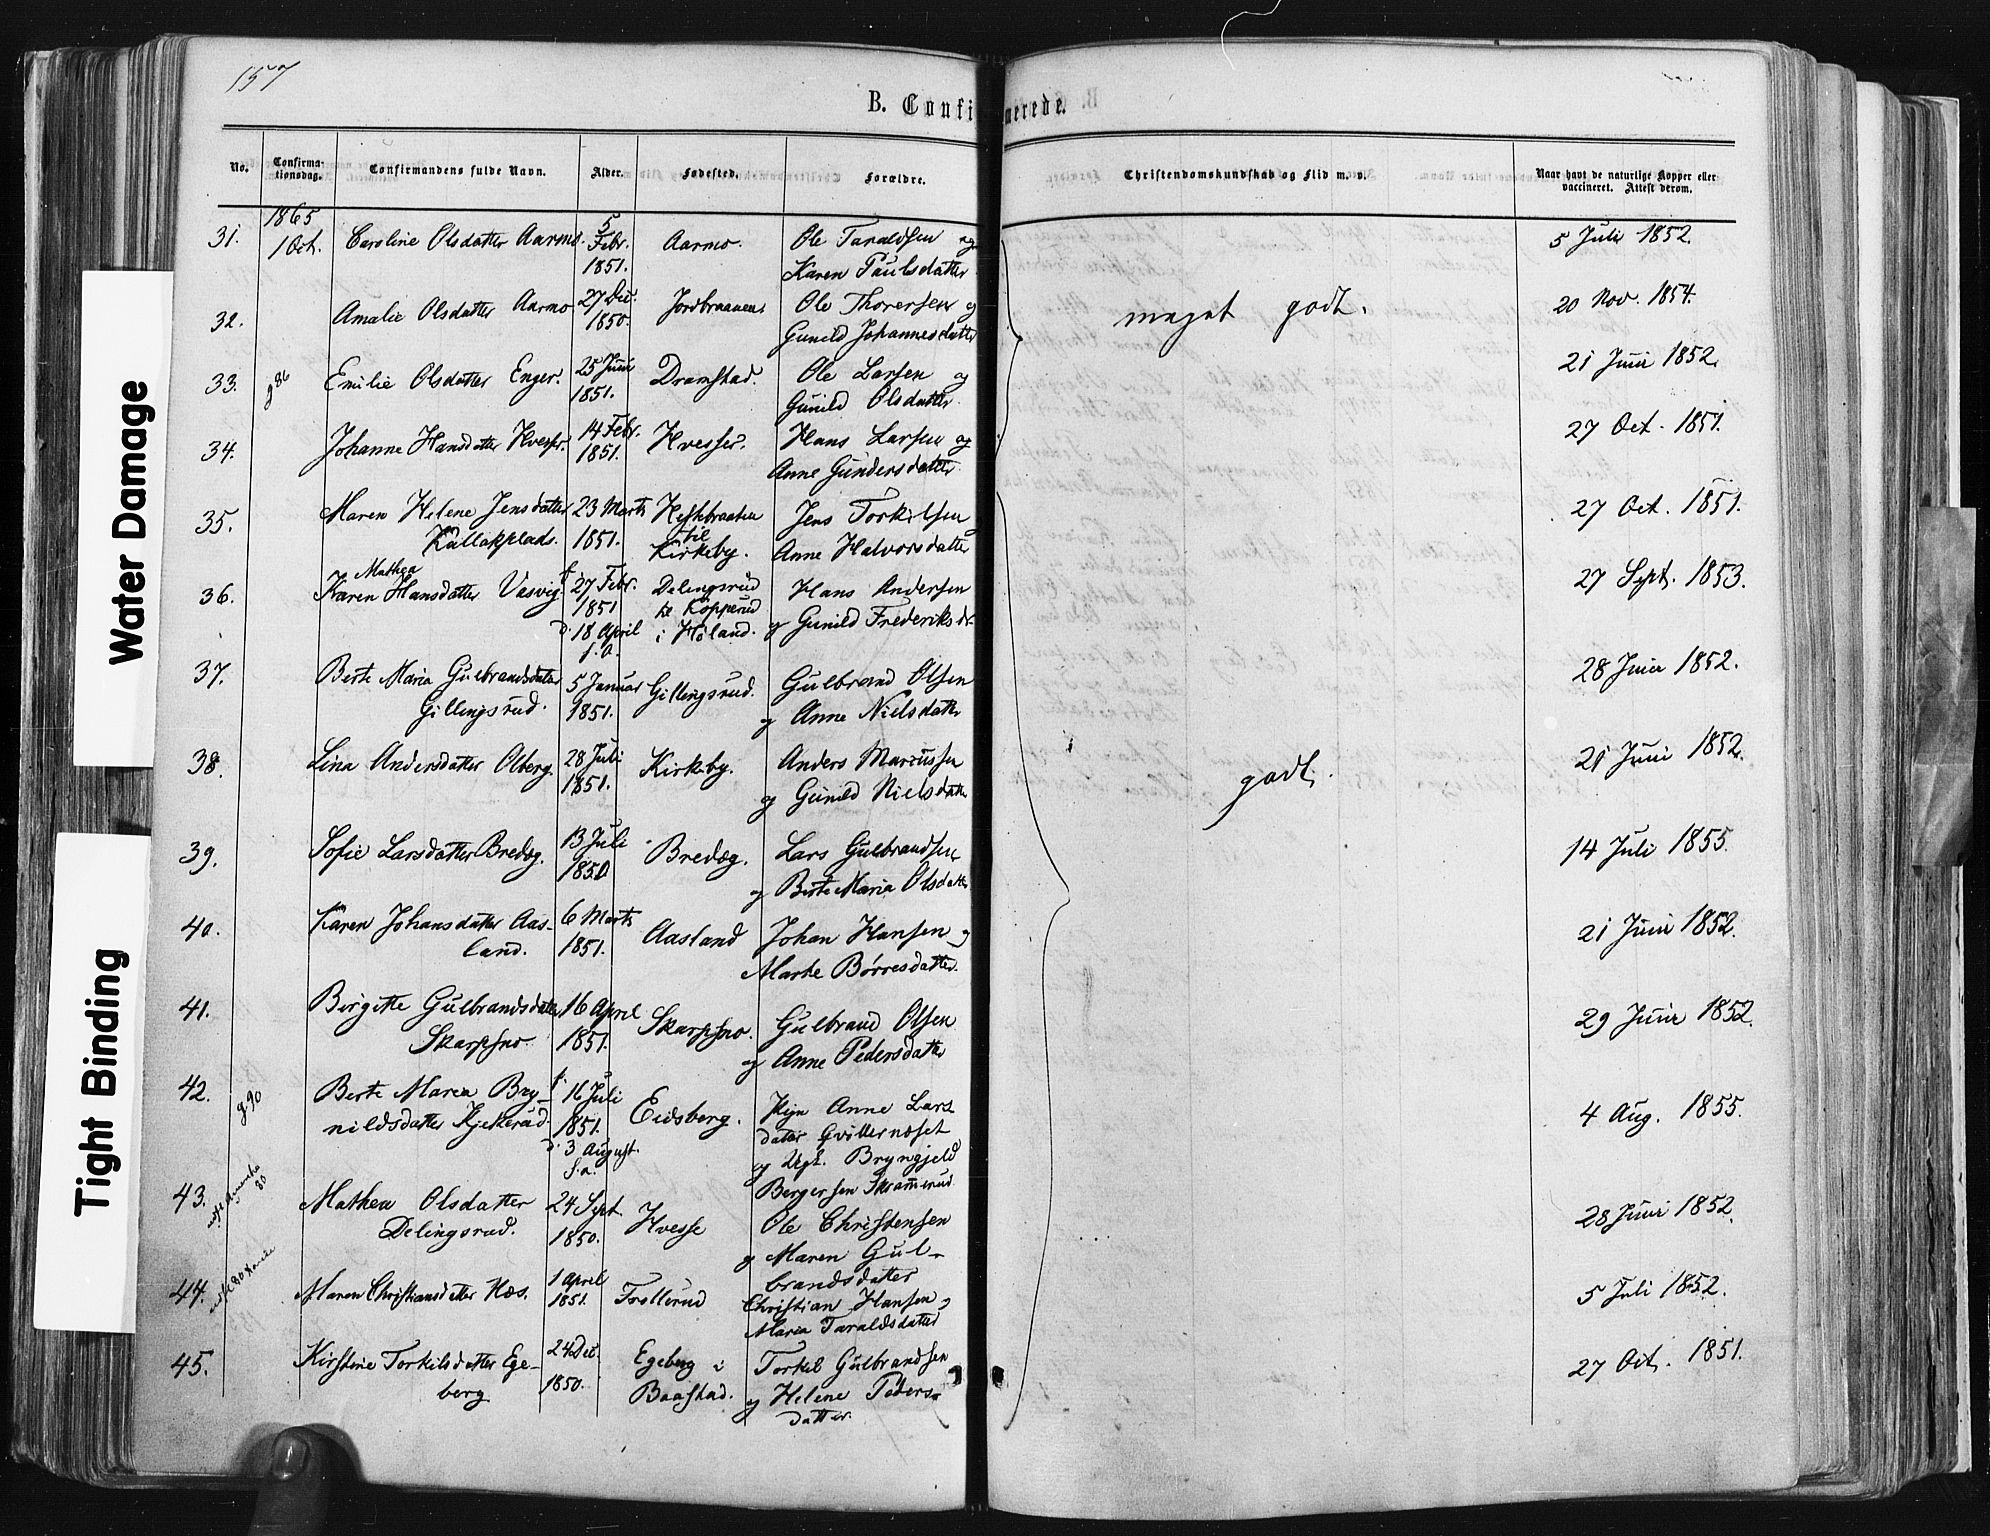 157
B. Confirmerede.
No.
Confirmationsdag.
Confirmandens fulde Navn.
Alder.
Fødested.
Forældre.
Christendomskundskab og Flid m. v.
Naar havt de naturlige Kopper eller vaccineret. Attest derom.
1865
31. 1 Oct. Caroline Olsdatter Aarmo. 5 Febr. 1851. Aarmo. Ole Taraldsen og Karen Paulsdatter 5 Juli 1852.
32. Amalie Olsdatter Aarmo 27 Dec. 1850. Jordbraaten. Ole Thorersen og Gunild Johannesdatter 20 Nov. 1854.
meget godt.
33. g 86 Emilie Olsdatter Enger. 25 Juni 1851. Dramstad. Ole Larsen og Gunild Olsdatter 21 Juni 1852.
34. Johanne Hansdatter Hvesser. 14 Febr. 1851. Hvesser. Hans Larsen og Anne Gundersdatter 27 Oct. 1851.
35. Maren Helene Jensdatter Kullakplads. 23 Marts 1851. Hestebraaten til Kirkeby. Jens Torkilsen Anne Halvorsdatter 27 Oct. 1851.
36. Karen Mathea Hansdatter Vasvig f. 27 Febr. 1851 d. 18 April s. a. Delingsrud i Høland. Hans Andersen og Gunild Frederiksdr. 27 Sept. 1853.
37. Berte Maria Gulbrandsdatter Gillingsrud. 5 Januar 1851. Gillingsrud. Gulbrand Olsen og Anne Nielsdatter 28 Juni 1852.
38. Lina Andersdatter Olberg. 28 Juli 1851. Kirkeby. Anders Marcussen og Gunild Nielsdatter 21 Juni 1852.
godt.
39. Sofie Larsdatter Bredeg. 13 Juli 1850 Bredeg. Lars Gulbrandsen og Berte Maria Olsdatter 14 Juli 1855.
40. Karen Johansdatter Aasland. 6 Marts 1851. Aasland Johan Hansen og Marte Børresdatter. 21 Juni 1852.
41. Birgitte Gulbrandsdatter Skarpsno. 16 April 1851. Skarpsno. Gulbrand Olsen og Anne Pedersdatter 29 Juni 1852.
42. g. 90 Berte Maria Brynildsdatter Kjekerud. f. 16 Juli 1851. d. 3 August. s. a. Eidsberg. Pige Anne Larsdatter og Ugt. Bryngjeld Bergersen 4 Aug. 1855.
43. Mathea Olsdatter Delingsrud. 24 Sept. 1850. Hvesse Ole Christensen og Maren Gulbrandsdatter 28 Juni 1852.
44. Maren Christiansdatter Næs. 1 April 1851. Trollerud Christian Hansen og Maria Taraldsdatter 5 Juli 1852.
45. Kirstine Torkilsdatter Egeberg 24 Dec. 1850. Egeberg i Baastad. Torkil Gulbrandsen og Helene Pedersdatter. 27 Oct. 1851.
Water Damage
Tight Binding